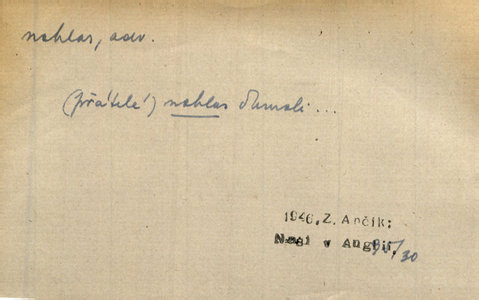 nahlas, adv.
(přátelé) nahlas dumali...
1946, Z. Ančík:
v Anglii,
/30